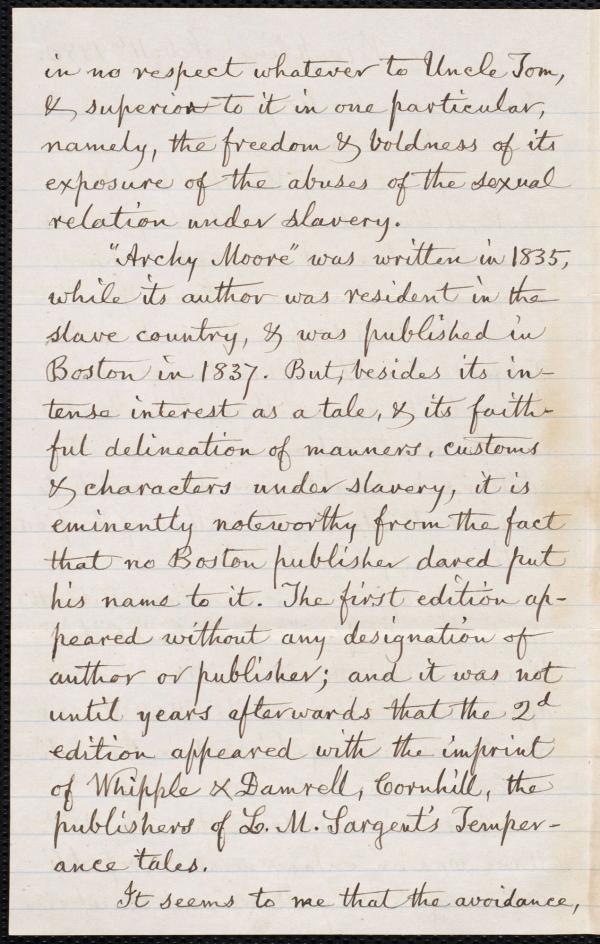 in no respect whatever to Uncle Tom,
& superior to it in one particular,
namely, the freedom & boldness of its
exposure of the abuses of the sexual
relation under slavery.
"Archy Moore" was written in 1835,
while its author was resident in the
slave country, & was published in
Boston in 1837. But, besides its in-
tense interest as a tale, & its faith-
ful delineation of manners, customs
& characters under slavery, it is
eminently noteworthy from the fact
that no Boston publisher dared put
his name to it. The first edition ap-
peared without any designation of
author or publisher; and it was not
until years afterwards that the 2d
edition appeared with the imprint
of Whipple & Damrell, Cornhill, the
publishers of L. M. Sargent's Temper-
ance tales.
It seems to me that the avoidance,